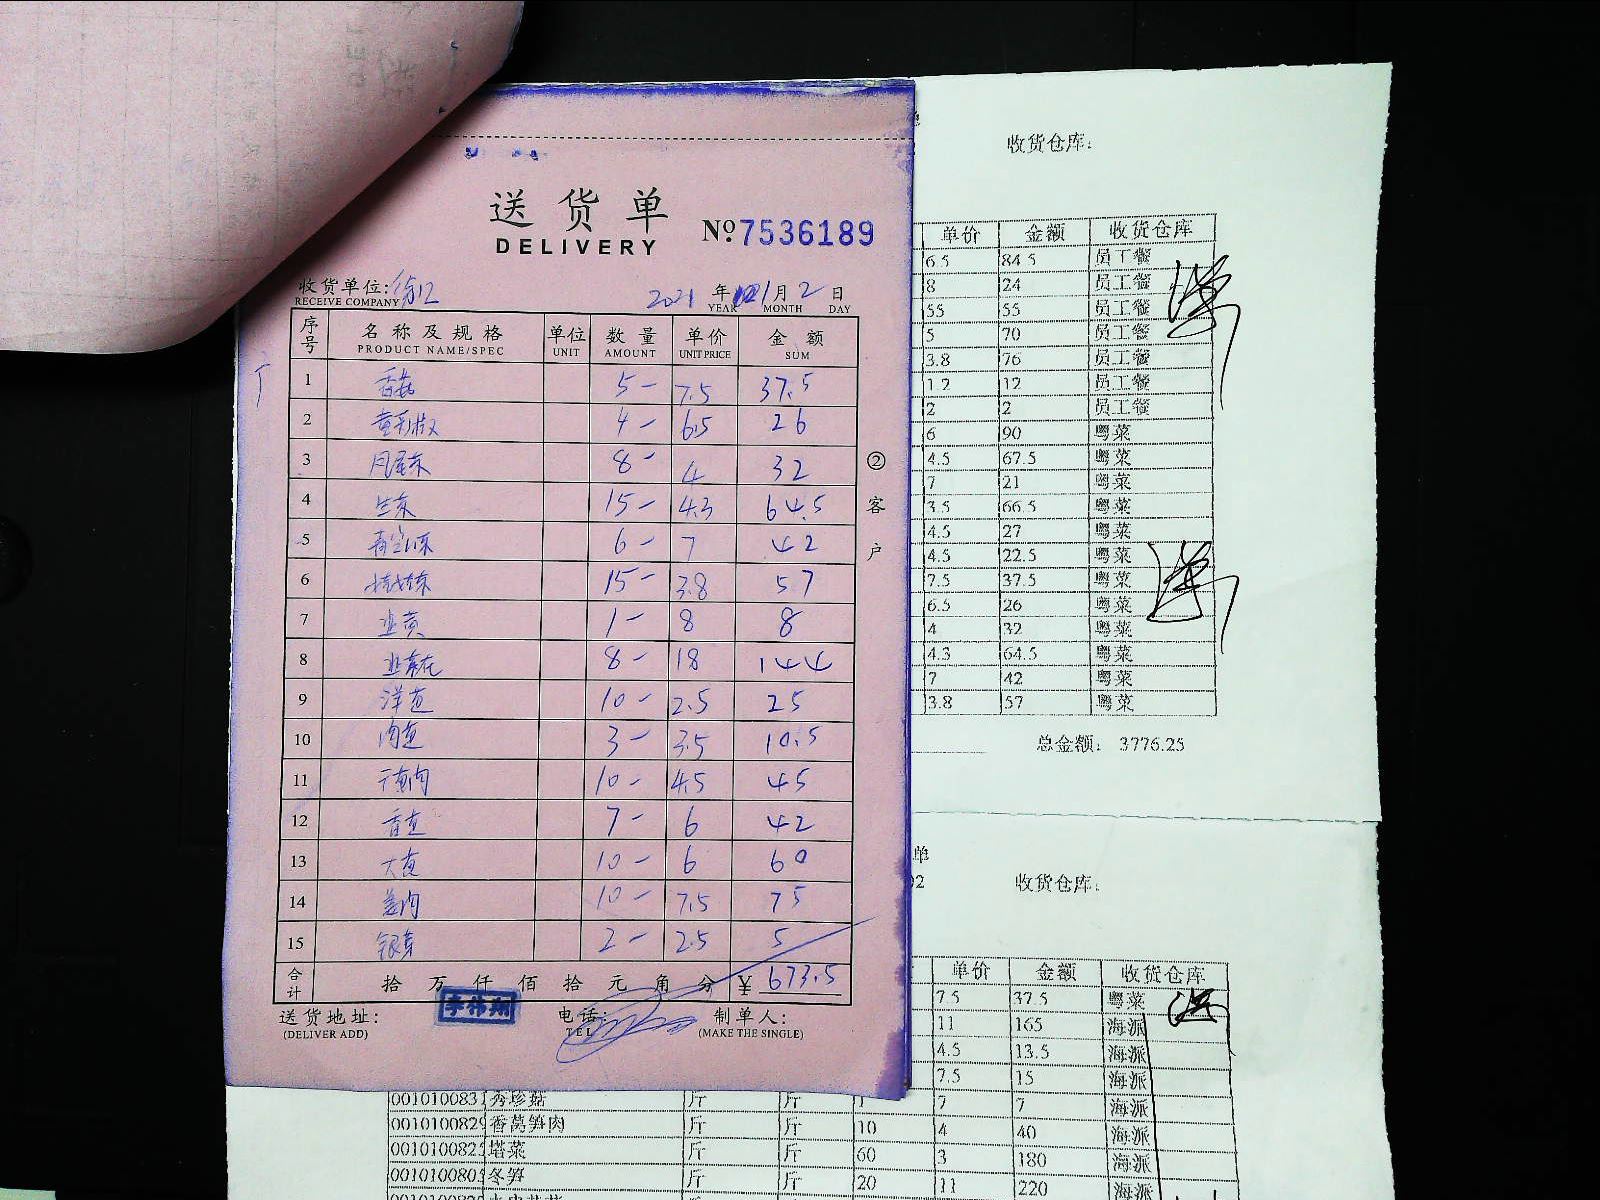 送货单
DELIVERY
№ 7536189
收货单位: 徐汇
RECEIVE COMPANY
2021 年 1 月 2 日
YEAR MONTH DAY
序号 名称及规格 单位 数量 单价 金额
PRODUCT NAME/SPEC UNIT AMOUNT UNIT PRICE SUM
1 香菇 5- 7.5 37.5
2 黄彩椒 4- 6.5 26
3 8- 4 32
4 生菜 15- 4.3 64.5
5 6- 7 42
6 15- 3.8 57
7 韭黄 1- 8 8
8 韭菜花 8- 18 144
9 洋葱 10- 2.5 25
10 肉葱 3- 3.5 10.5
11 10- 4.5 45
12 香葱 7- 6 42
13 大葱 10- 6 60
14 姜肉 10- 7.5 75
15 银芽 2- 2.5 5
合计 拾 万 仟 佰 拾 元 角 分 ¥ 673.5
送货地址: 电话: 制单人:
(DELIVER ADD) TEL (MAKE THE SINGLE)
李伟翔
②客户
收货仓库:
单价 金额 收货仓库
6.5 84.5 员工餐
8 24 员工餐
55 55 员工餐
5 70 员工餐
3.8 76 员工餐
1.2 12 员工餐
2 2 员工餐
6 90 粤菜
4.5 67.5 粤菜
7 21 粤菜
3.5 66.5 粤菜
4.5 27 粤菜
4.5 22.5 粤菜
7.5 37.5 粤菜
6.5 26 粤菜
4 32 粤菜
4.3 64.5 粤菜
7 42 粤菜
3.8 57 粤菜
总金额: 3776.25
单
02 收货仓库:
单价 金额 收货仓库
7.5 37.5 粤菜
11 165 海派
4.5 13.5 海派
7.5 15 海派
0010100831 秀珍菇 斤 斤 1 7 7 海派
0010100829 香莴笋肉 斤 斤 10 4 40 海派
0010100825 塔菜 斤 斤 60 3 180 海派
0010100805 冬笋 斤 斤 20 11 220 海派